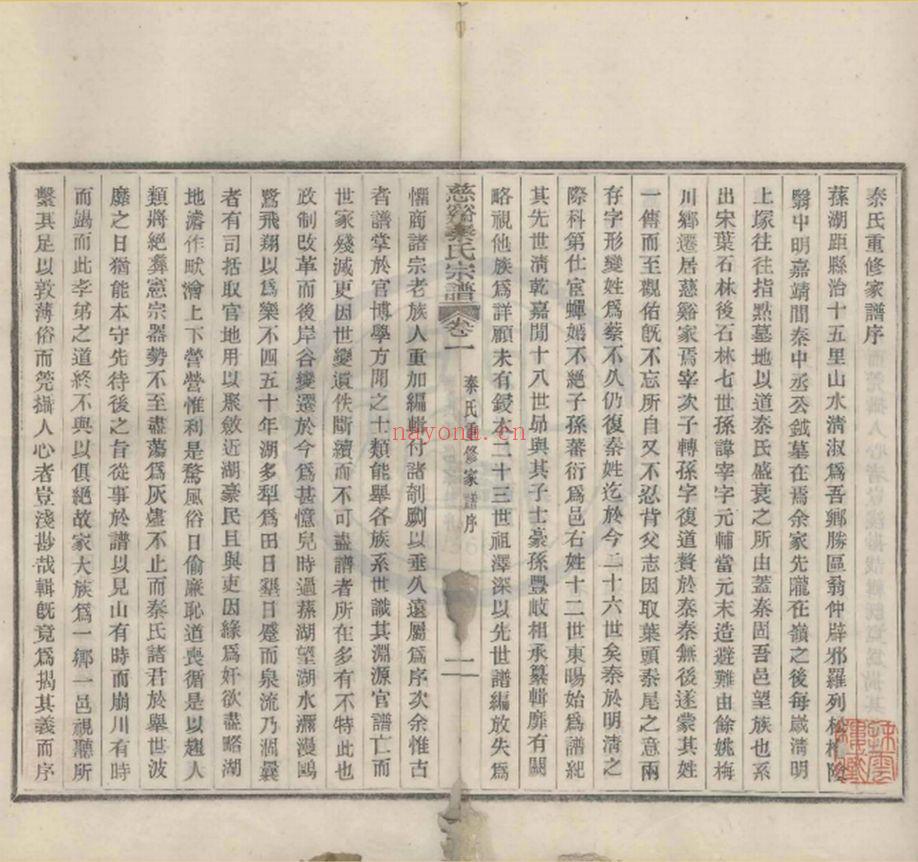 秦氏重修家譜序
蓀湖距縣治十五里山水清淑爲吾鄉勝區翁仲辟邪羅列
翳中明嘉靖間秦中丞公鉞墓在焉余家先隴在嶺之後每歲清明
上塚往往指點墓地以道秦氏盛衰之所由蓋秦固吾邑望族也系
出宋葉石林後石林七世孫諱宰字元輔當元末造避難由餘姚梅
川鄉遷居慈谿家焉宰次子轉孫字復道贅於秦秦無後遂蒙其姓
一傳而至觀佑既不忘所自又不忍背父志因取葉頭秦尾之意兩
存字形變姓爲蔡不久仍復秦姓迄於今二十六世矣秦於明清之
際科第仕宦蟬嫣不絕子孫蕃衍爲邑右姓十二世東暘始爲譜紀
其先世清乾嘉間十八世昴與其子士豪孫豐岐相承纂輯靡有闕
略視他族爲詳顧未有鋟本二十三世祖澤深以先世譜編放失爲
慈谿秦氏宗譜 卷一 秦氏重修家譜序 一
懼商諸宗老族人重加編輯付諸剞劂以垂久遠屬爲序次余惟古
者譜掌於官博學方聞之士類能舉各族系世識其淵源官譜亡而
世家殘滅更因世變遺佚斷續而不可盡譜者所在多有不特此也
政制改革而後岸谷變遷於今爲甚憶兒時過蓀湖望湖水瀰漫鷗
鷺飛翔以爲樂不四五十年湖多犁爲田日墾日蹙而泉流乃涸曩
者有司括取官地用以聚斂近湖豪民且與吏因緣爲奸欲盡略湖
地濬作畎澮上下營營惟利是騖風俗日偷廉恥道喪循是以趨人
類將絕彝憲宗器勢不至盡蕩爲灰燼不止而秦氏諸君於舉世波
靡之日猶能本守先待後之旨從事於譜以見山有時而崩川有時
而竭而此孝弟之道終不與以俱絕故家大族爲一鄉一邑視聽所
繫其足以敦薄俗而筦攝人心者豈淺尠哉輯既竟爲揭其義而序
nayona.cn